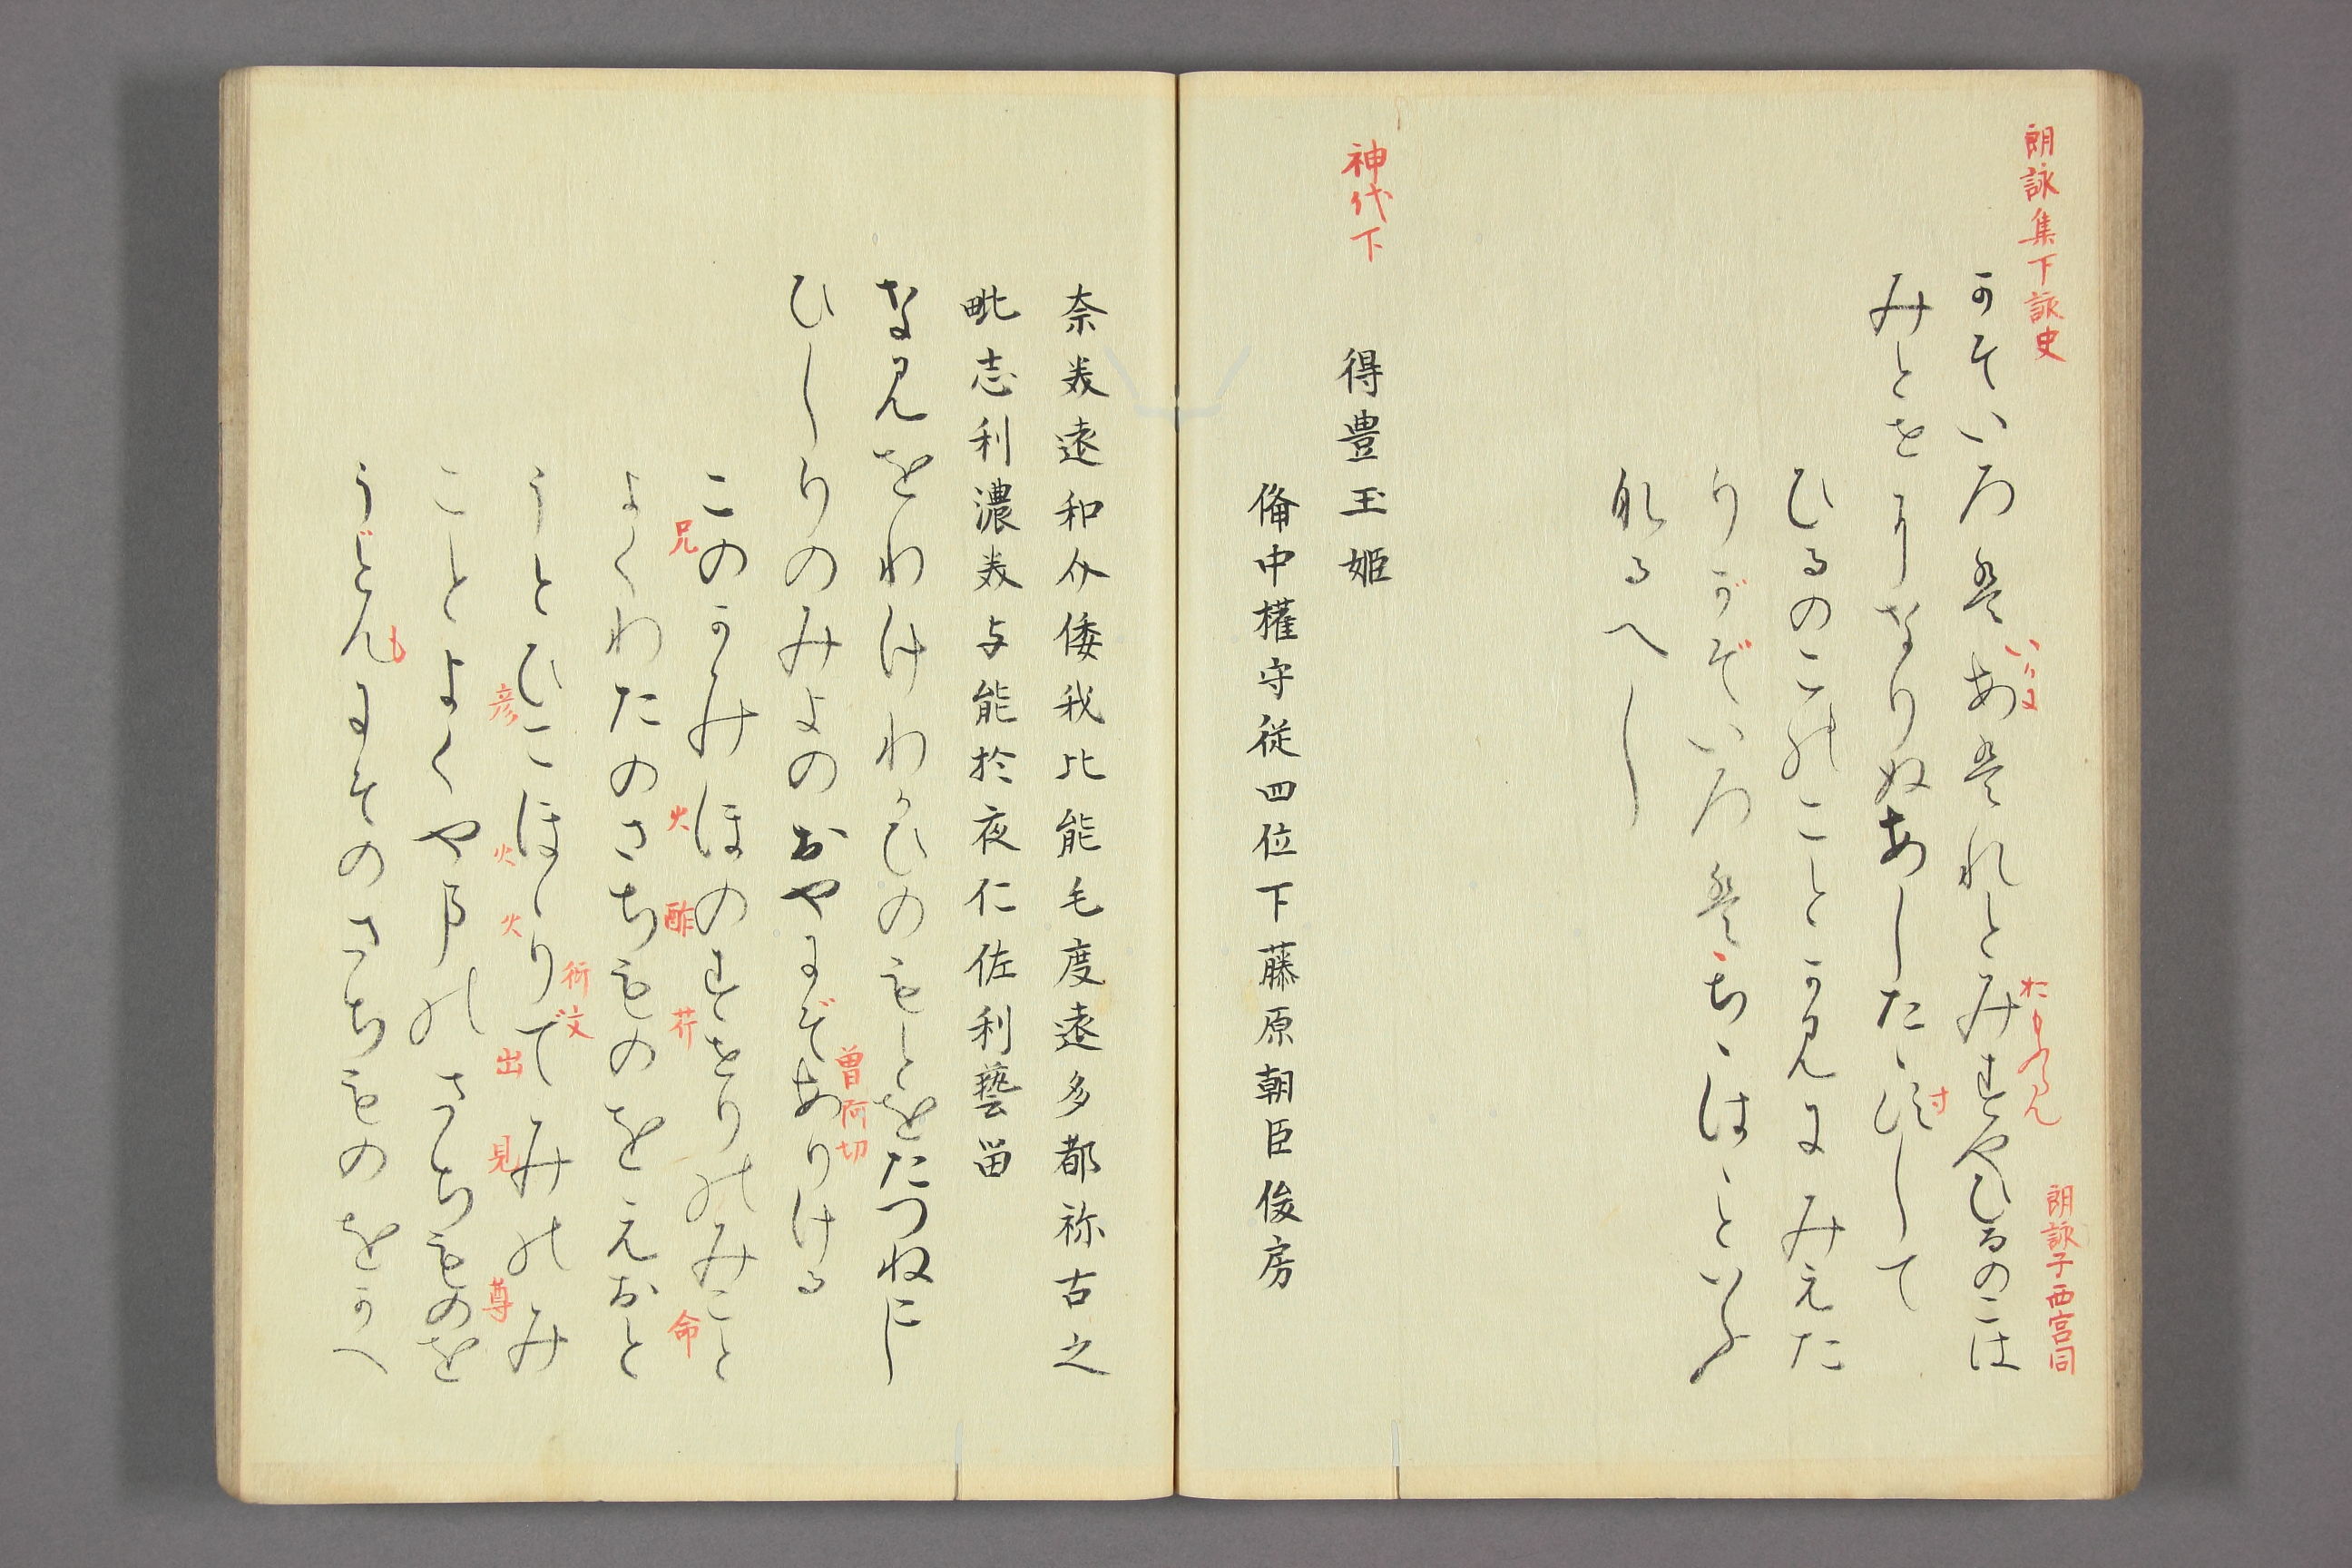 朗詠集下詠史
かそいろはあはれとみすやひるのこは
いかに
おもふらん
朗詠子西宮同
みとせになりぬあしたゝすして
ひるのこのことかみにみえた
りがぞいろはちゝはゝといふ
なるへし
神代下
得豊玉姫
備中權守従四位下藤原朝臣俊房
奈美遠和介倭我比能毛度遠多都祢古之
毗志利濃美与能於夜仁佐利藝留
なみをわけわかひのもとをたつねこし
ひしりのみよのおやにぞありける
曽阿切
このかみほのすせりのみこと
兄 火 酢 芹 命
よくわたのさちものをえおと
うとひこほゝりでみのみ
彦 火 火 出 見 尊
衍文
ことよくやまのさちものを
うどんにそのさちものをかへ
も